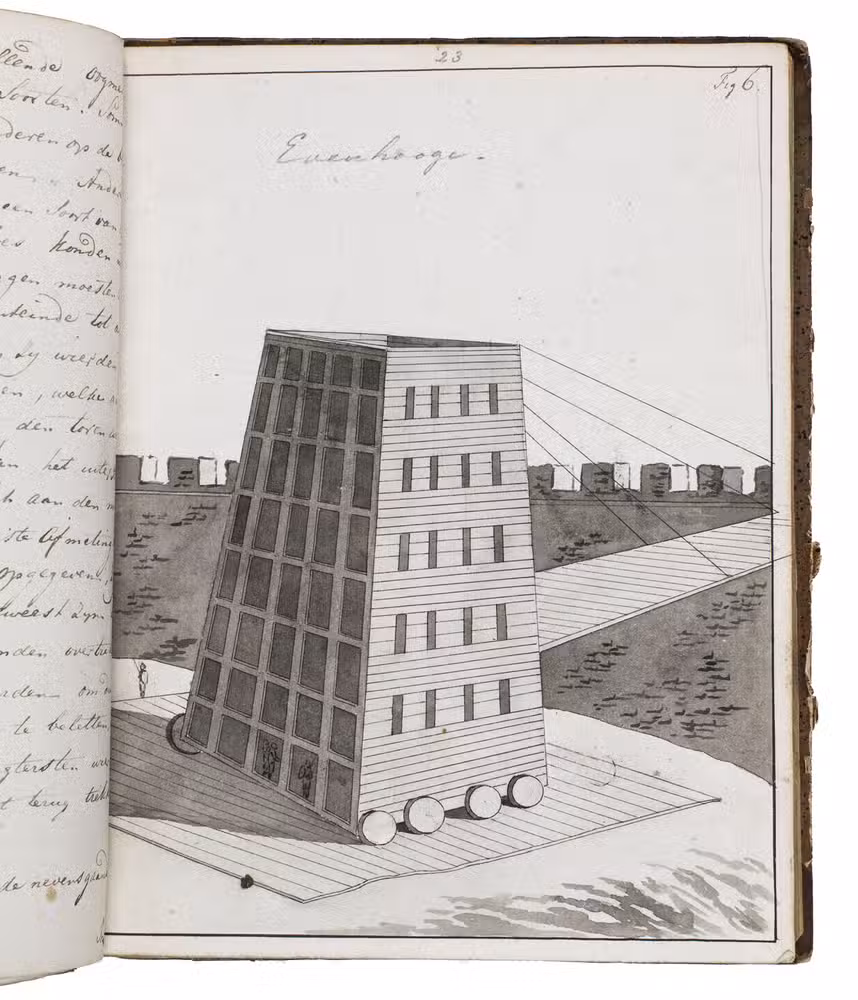 llende oogme
Soorten. Som
deren op de
en. Ande
een Soort van
es konden
gen moesten
uiteinde tot
zy wierden
en, welke
den toren
het uite
h aan den m
ste Afmetin
opgegeven,
weest zyn
nden over
rden om
te beletten
gtersten
t terug trek
de nevensgaand
23
Fig 6.
Evenhooge.